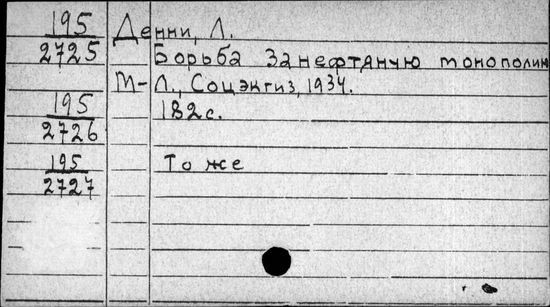 195 Денни, Л.
2725 Борьба за нефтяную монополию
М-Л., Соцэкгиз, 1934.
195 182с.
2726
195 То же
2727